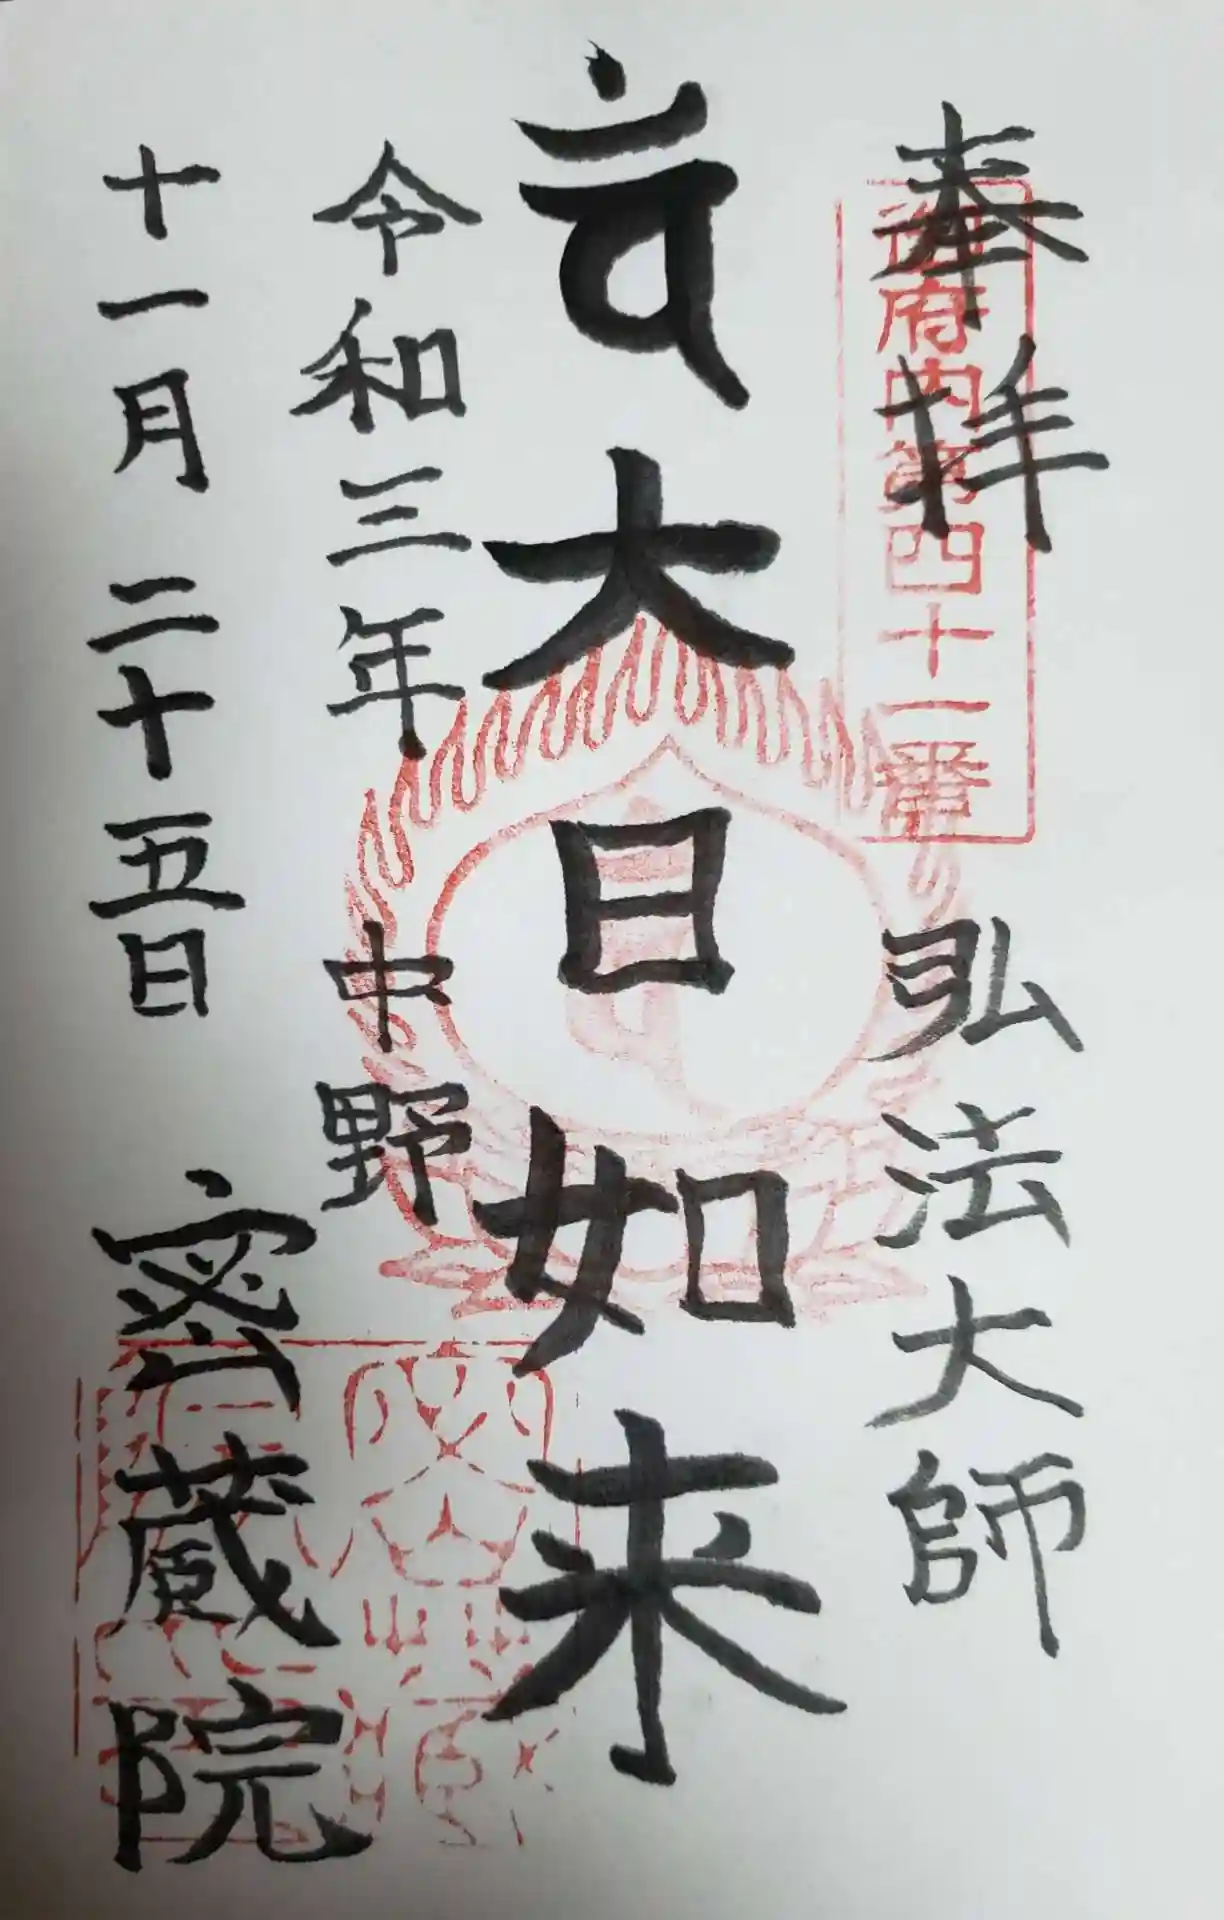 奉拝
御府内第四十一番
弘法大師
大日如来
令和三年
中野
十一月二十五日
密蔵院